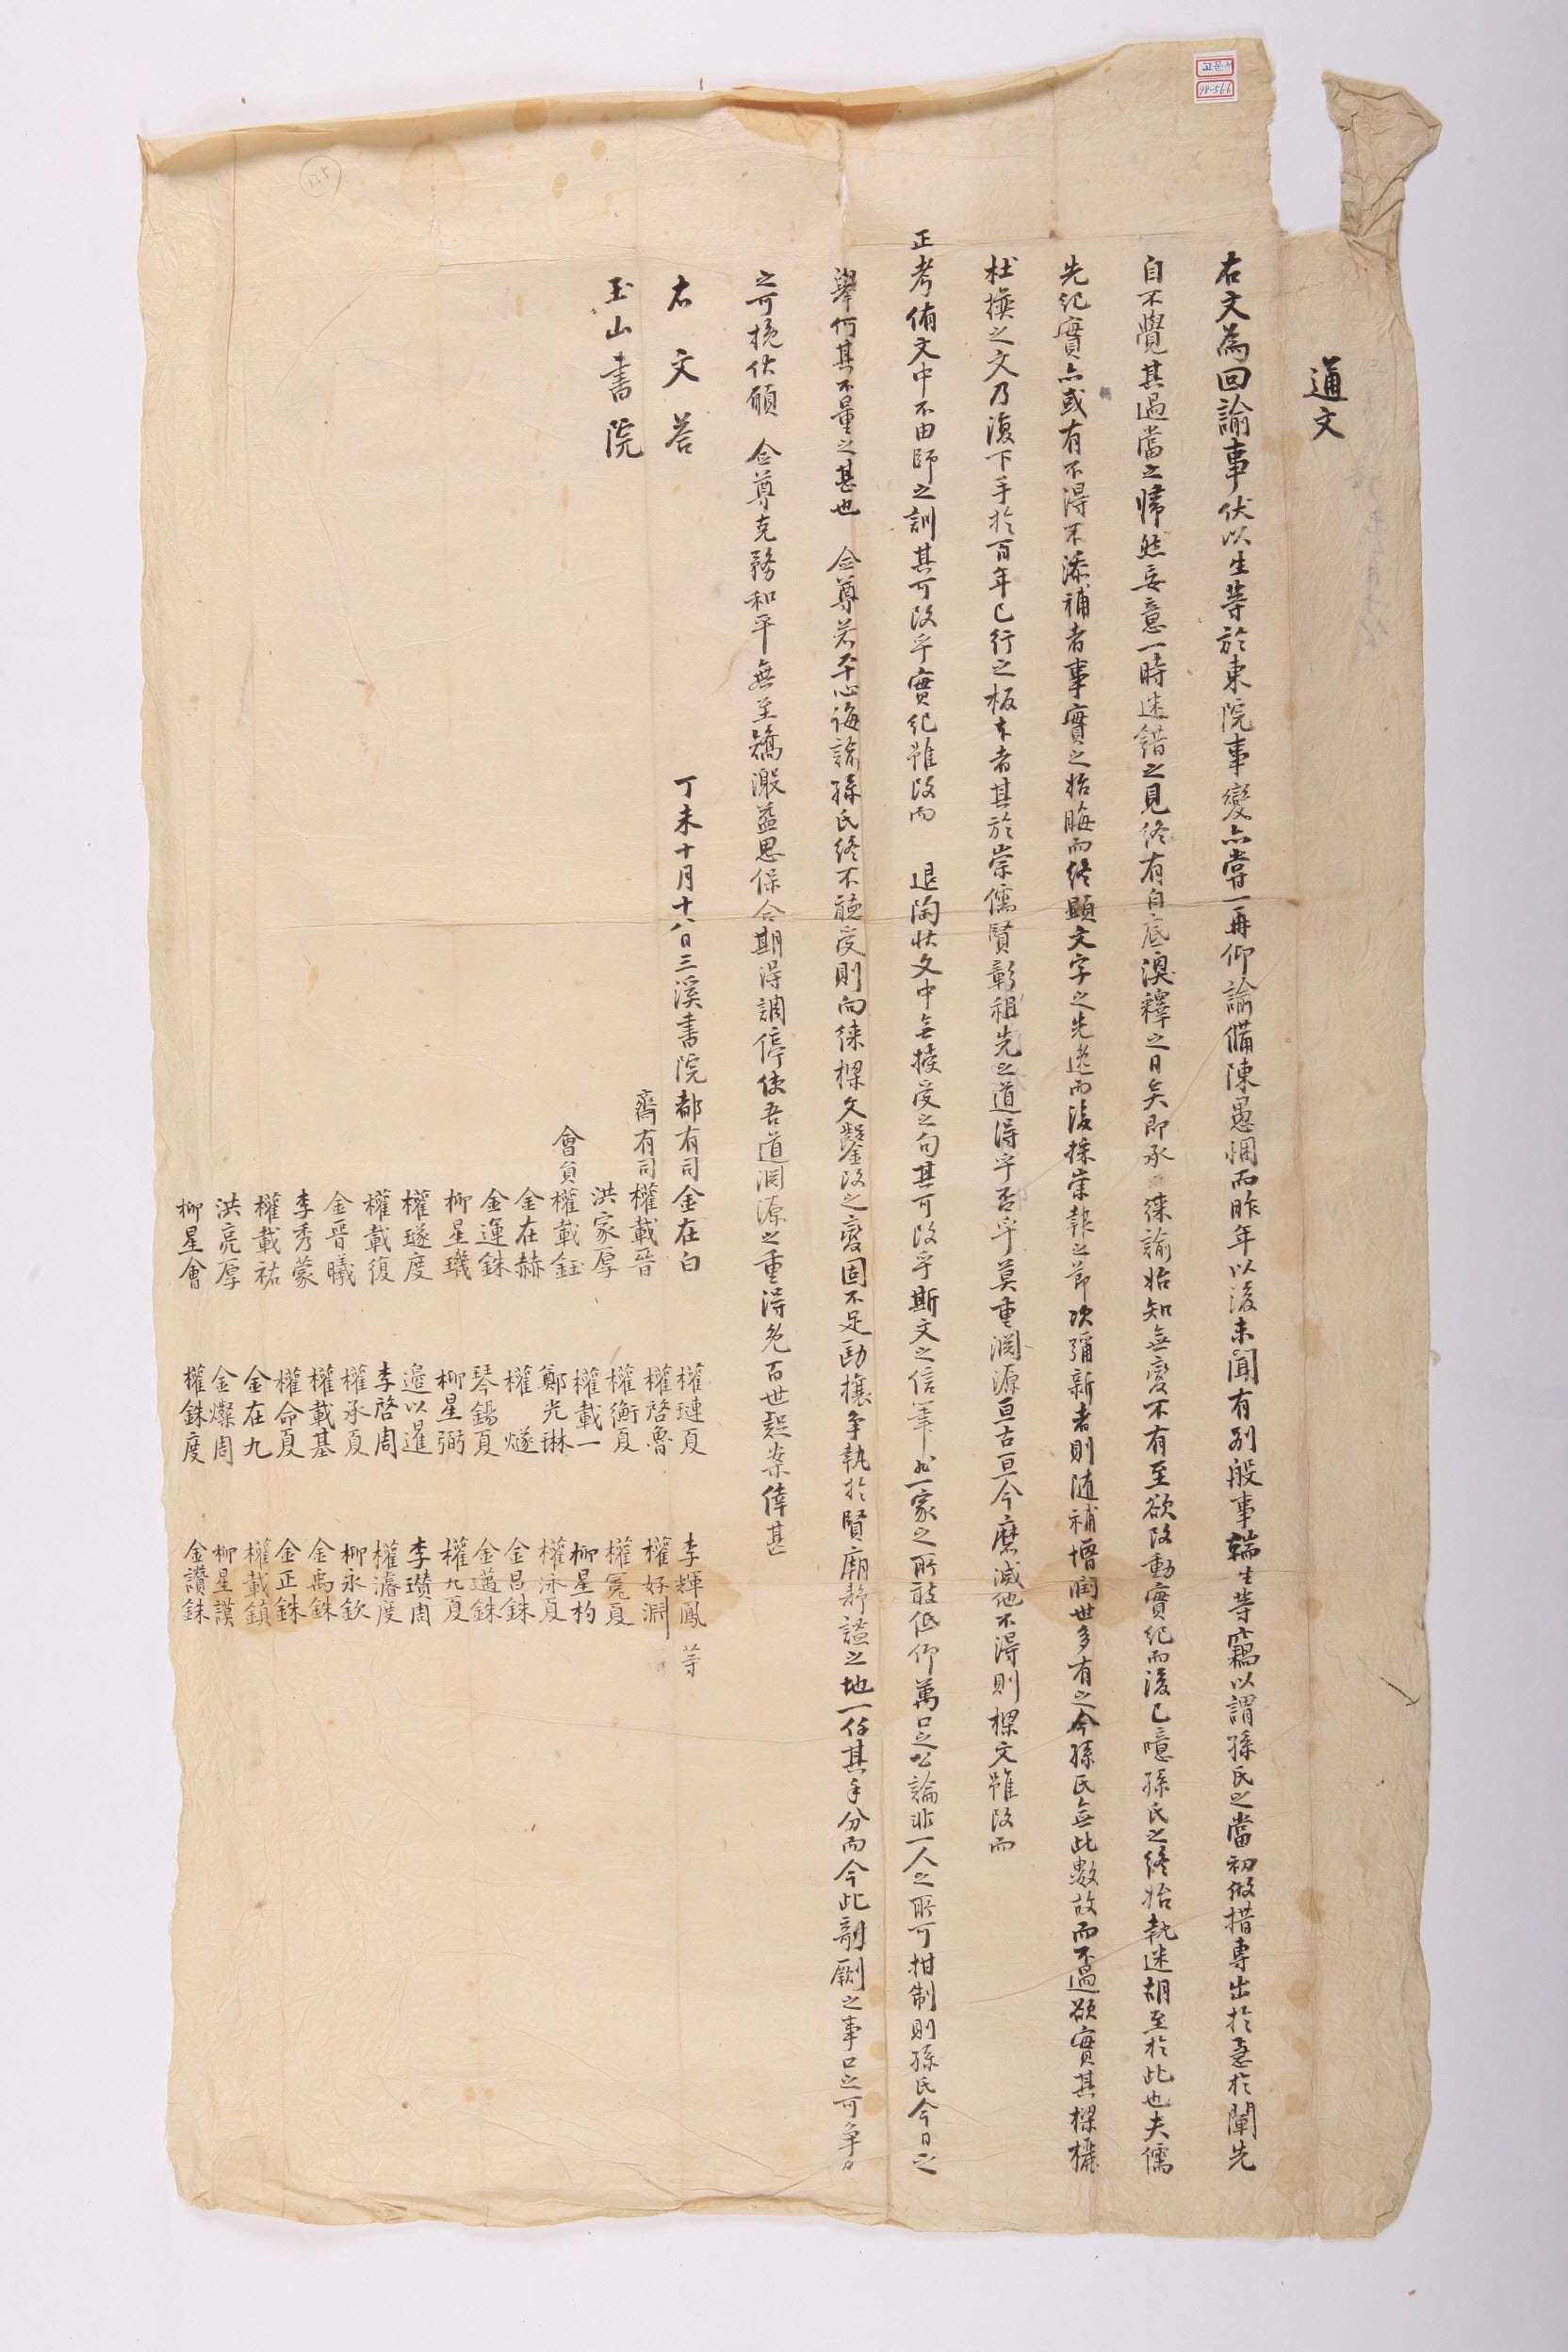 고문서
98-566
135
通文
右文為回諭事伏以生等於東院事變亦嘗一再仰諭備陳愚悃而昨年以後未聞有別般事端生等竊以謂孫氏之當初做措專出於急於闡先
自不覺其過當之歸然妄意一時迷錯之見終有自底渙釋之日矣即承 來諭始知無變不有至欲改動實紀而後已噫孫氏之終始執迷胡至於此也夫儒
先紀實亦或有不得不添補者事實之始晦而終顯文字之先逸而後採崇報之節次彌新者則隨補增潤世多有之今孫氏無此數故而不過欲實其樑欐
杜撰之文乃復下手於百年已行之板本者其於崇儒賢彰祖先之道得乎否乎莫重淵源亘古亘今磨滅他不得則樑文雖改而
正考侑文中不由師之訓其可改乎實紀雖改而 退陶狀文中無授受之句其可改乎斯文之信筆非一家之所敢低仰萬口之公論非一人之所可柑制則孫氏今日之
擧何其不量之甚也 僉尊若平心誨諭孫氏終不聽受則向來樑文鑿改之變固不足動攘爭執於賢廟靜謐之地一任其手分而今此剞劂之事口之可爭力
之可挽伏願 僉尊克務和平無至矯激益思保合期得調停使吾道淵源之重得免百世疑案倖甚
右文答
玉山書院
丁未十月十八日三溪書院都有司金在白
齋有司權載晉
洪家厚
會員權載鈺
金在赫
金運銖
柳星璣
權璲度
權載復
金晉曦
李秀蒙
權載祐
洪亮厚
柳星會
權璉夏
權啓魯
權衡夏
權載一
鄭光琳
權 燧
琴錫夏
柳星弼
邊以暹
李啓周
權承夏
權載基
權命夏
金在九
金燦周
權銖度
李輝鳳 等
權好淵
權冕夏
柳星杓
權泳夏
金昌銖
金邁銖
權九夏
李瓚周
權濬度
柳永欽
金禹銖
金正銖
權載鎮
柳星謨
金讚銖